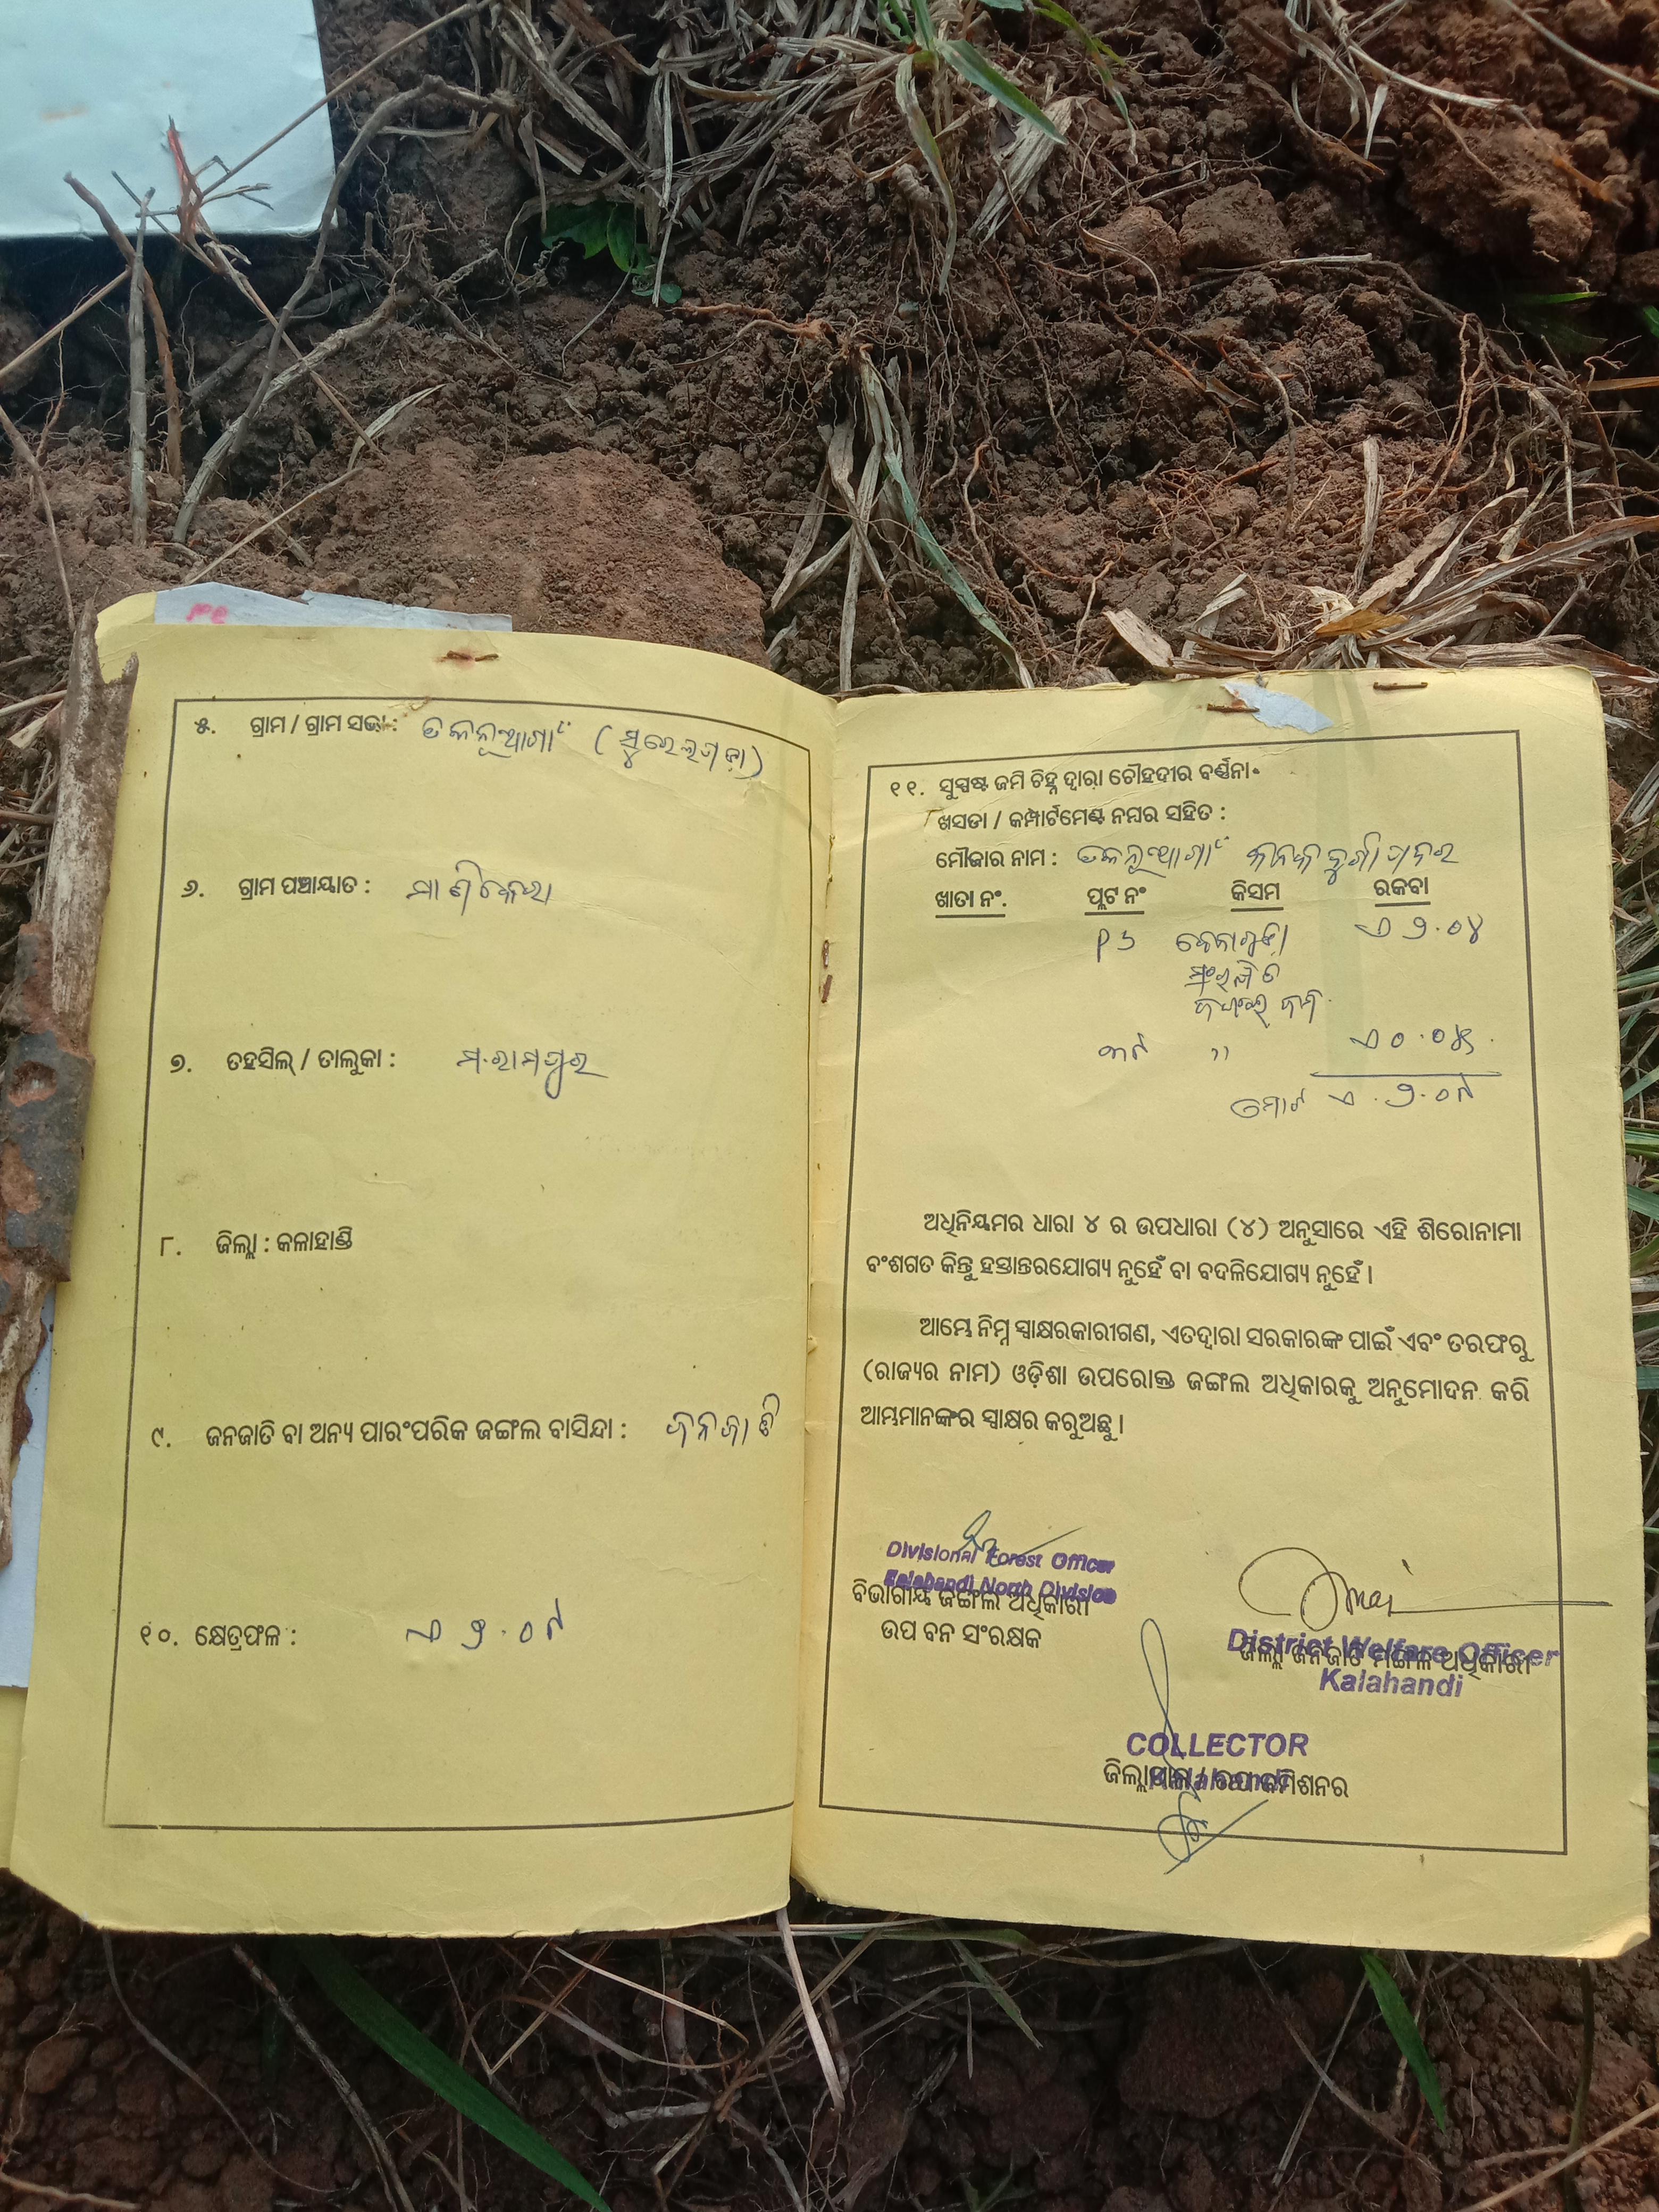 ୫. ଗ୍ରାମ / ଗ୍ରାମ ସଭା :
୬. ଗ୍ରାମ ପଞ୍ଚାୟାତ :
୭. ତହସିଲ୍ / ତାଲୁକା : ମ.ରାମପୁର
୮. ଜିଲ୍ଲା : କଳାହାଣ୍ଡି
୯. ଜନଜାତି ବା ଅନ୍ୟ ପାରଂପରିକ ଜଙ୍ଗଲ ବାସିନ୍ଦା : ଜନଜାତି
୧୦. କ୍ଷେତ୍ରଫଳ : ଏ ୨.୦୯
୧୧. ସୁସ୍ପଷ୍ଟ ଜମି ଚିହ୍ନ ଦ୍ୱାରା ଚୌହଦୀର ବର୍ଣ୍ଣନା
ଖସଡା / କମ୍ପାର୍ଟମେଣ୍ଟ ନମ୍ବର ସହିତ :
ମୌଜାର ନାମ :
ଖାତା ନଂ. ପ୍ଲଟ ନଂ କିସମ ରକବା
ଏ ୨.୦୪
ଏ ୦.୦୫
ମୋଟ ଏ.୨.୦୯
ଅଧିନିୟମର ଧାରା ୪ ର ଉପଧାରା (୪) ଅନୁସାରେ ଏହି ଶିରୋନାମା
ବଂଶଗତ କିନ୍ତୁ ହସ୍ତାନ୍ତରଯୋଗ୍ୟ ନୁହେଁ ବା ବଦଳିଯୋଗ୍ୟ ନୁହେଁ ।
ଆମ୍ଭେ ନିମ୍ନ ସ୍ୱାକ୍ଷରକାରୀଗଣ, ଏତଦ୍ୱାରା ସରକାରଙ୍କ ପାଇଁ ଏବଂ ତରଫରୁ
(ରାଜ୍ୟର ନାମ) ଓଡ଼ିଶା ଉପରୋକ୍ତ ଜଙ୍ଗଲ ଅଧିକାରକୁ ଅନୁମୋଦନ କରି
ଆମ୍ଭମାନଙ୍କର ସ୍ୱାକ୍ଷର କରୁଅଛୁ ।
Divisional Forest Officer
Kalahandi North Division
ବିଭାଗୀୟ ଜଙ୍ଗଲ ଅଧିକାରୀ
ଉପ ବନ ସଂରକ୍ଷକ
District Welfare Officer
ଜିଲ୍ଲା ଜନଜାତି ମଙ୍ଗଳ ଅଧିକାରୀ
Kalahandi
COLLECTOR
Kalahandi
ଜିଲ୍ଲାପାଳ / ଉପ କମିଶନର